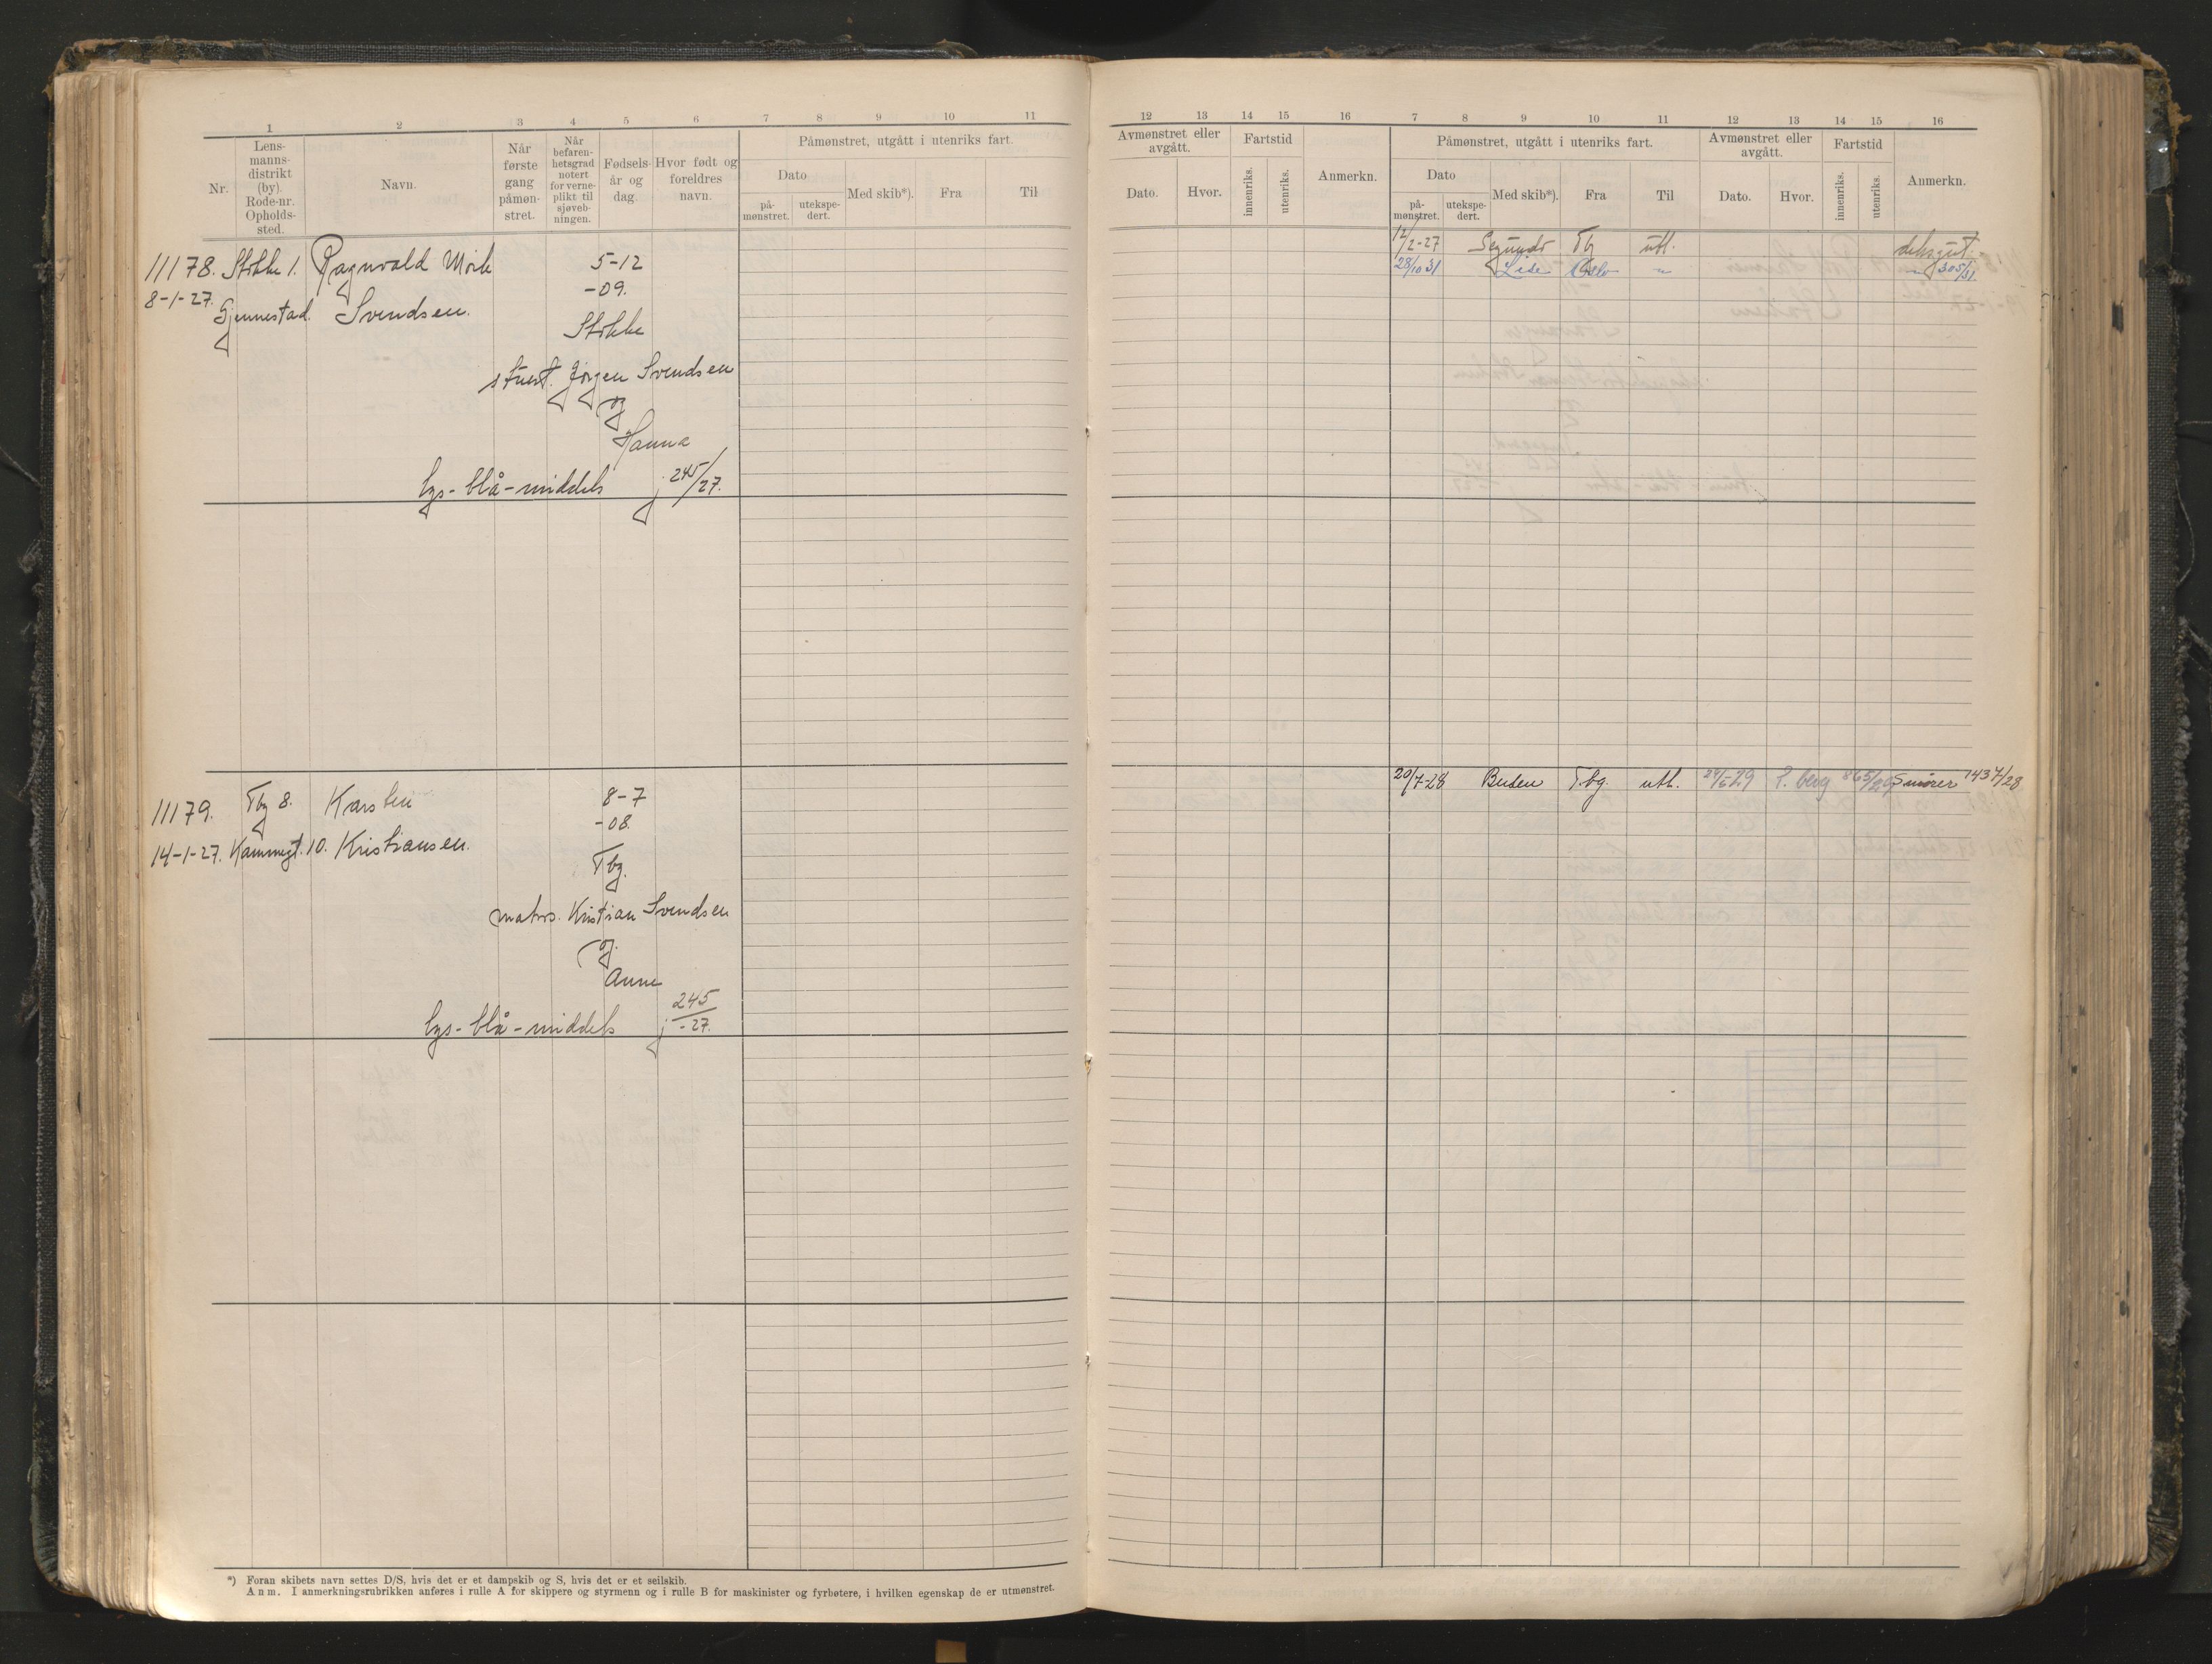 1 2 3 4 5 6 7 8 9 10 11
Nr.
Lens-
manns-
distrikt
(by).
Rode-nr.
Opholds-
sted.
Navn.
Når
første
gang
påmøn-
stret.
Når
befaren-
hetsgrad
notert
for verne-
plikt til
sjøveb-
ningen.
Fødsels-
år og
dag
Hvor født og
foreldres
navn.
Påmønstret, utgått i utenriks fart.
Dato
på-
mønstret.
utekspe-
dert.
Med skib*).
Fra
Til
11178. Stokke 1. Ragnvald Mörk 5-12
8-1-27. Gjennestad. Svendsen. -09.
Stokke
stuert. Jörgen Svendsen
og
Hanna
lys-blå-middels j 245/27.
11179. Tbg 8. Karsten 8-7
-08.
14-1-27. Kammegt. 10. Kristiansen.
Tbg.
matros. Kristian Svendsen
og
Anne
lys-blå-middels j 245/-27.
*) Foran skibets navn settes D/S, hvis det er et dampskib og S, hvis det er et seilskib.
Anm. I anmerkningsrubrikken anføres i rulle A for skippere og styrmenn og i rulle B for maskinister og fyrbøtere, i hvilken egenskap de er utmønstret.
12 13 14 15 16 7 8 9 10 11 12 13 14 15 16
Avmønstret eller
avgått.
Dato.
Hvor.
Fartstid
innenriks.
utenriks.
Anmerkn.
Påmønstret, utgått i utenriks fart.
Dato
på-
mønstret.
utekspe-
dert.
Med skib*).
Fra
Til
Avmønstret eller
avgått.
Dato.
Hvor.
Fartstid
innenriks.
utenriks.
Anmerkn.
12/2-27 Segundo Tbg utl. deksgut.
28/10 31 Lise Oslo " " 305/31
20/7-28 Buden T.bg. utl. 24/6-29 T.berg 865/29 Smörer 1437/28